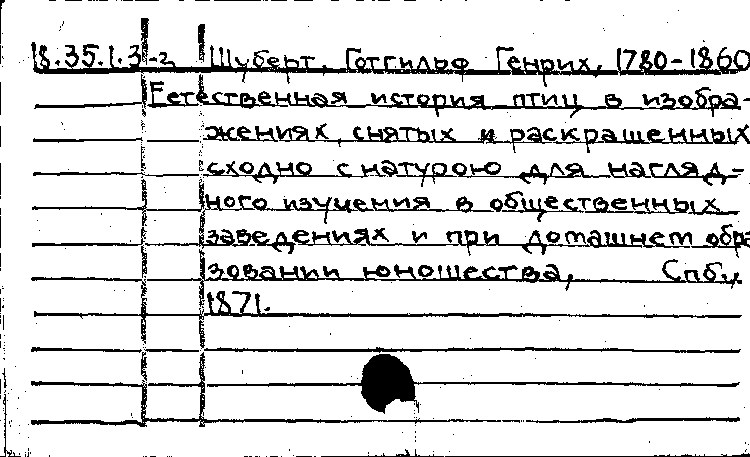 18.35.1.3-2 Шуберт, Готгильф Генрих, 1780-1860
Естественная история птиц в изобра-
жениях, снятых и раскрашенных
сходно с натурою для нагляд-
ного изучения в общественных
заведениях и при домашнем обра
зовании юношества, Спб,
1871.